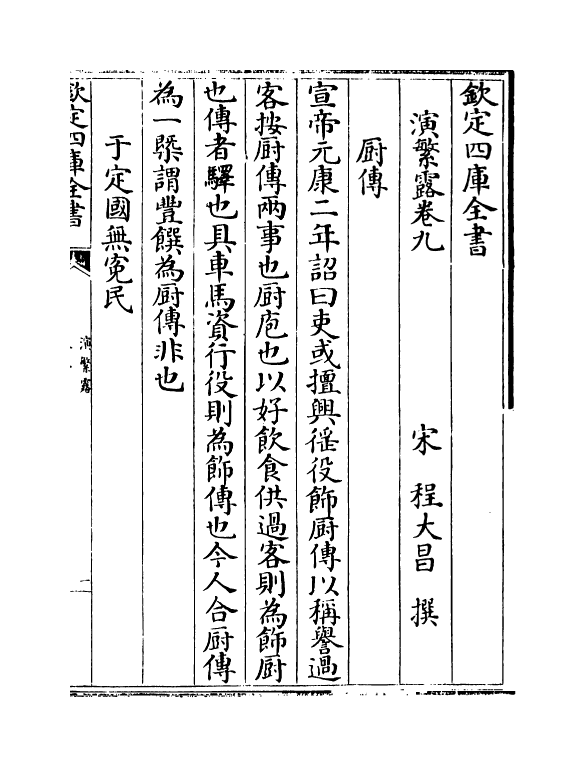 欽定四庫全書
演繁露卷九
宋 程大昌 撰
厨傳
宣帝元康二年詔曰吏或擅興徭役飾厨傳以稱譽過
客按厨傳兩事也厨庖也以好飲食供過客則為飾厨
也傳者驛也具車馬資行役則為飾傳也今人合厨傳
為一槩謂豐饌為厨傳非也
于定國無寃民
欽定四庫全書
演繁露